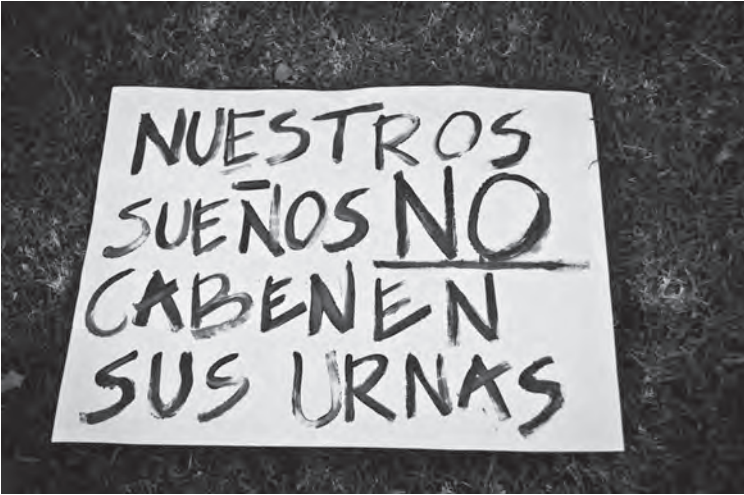 NUESTROS
SUEÑOS NO
CABEN EN
SUS URNAS